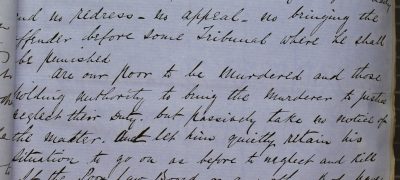 and no redress - no appeal - no bringing the
offender before some Tribunal where he shall
be punished
Are our poor to be murdered and those
holding authority to bring the Murderer to justice
neglect their Duty. but passively take no notice of
the matter. And let him quietly retain his
situation to go on as before to neglect and kill
Poor Law Board